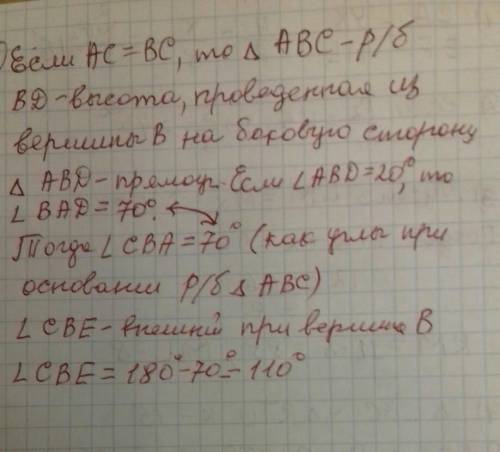 ) Если AC = BC, то Δ ABC - р/б
BD - высота, проведенная из
вершины B на боковую сторону
Δ ABD - прямоуг. Если ∠ABD = 20°, то
∠ BAD = 70°.
Тогда ∠ CBA = 70° (как углы при
основании р/б Δ ABC)
∠ CBE - внешний при вершине B
∠ CBE = 180° - 70° = 110°